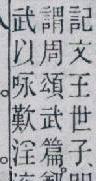 記文王世子
謂周頌武篇
武以咏歎淫